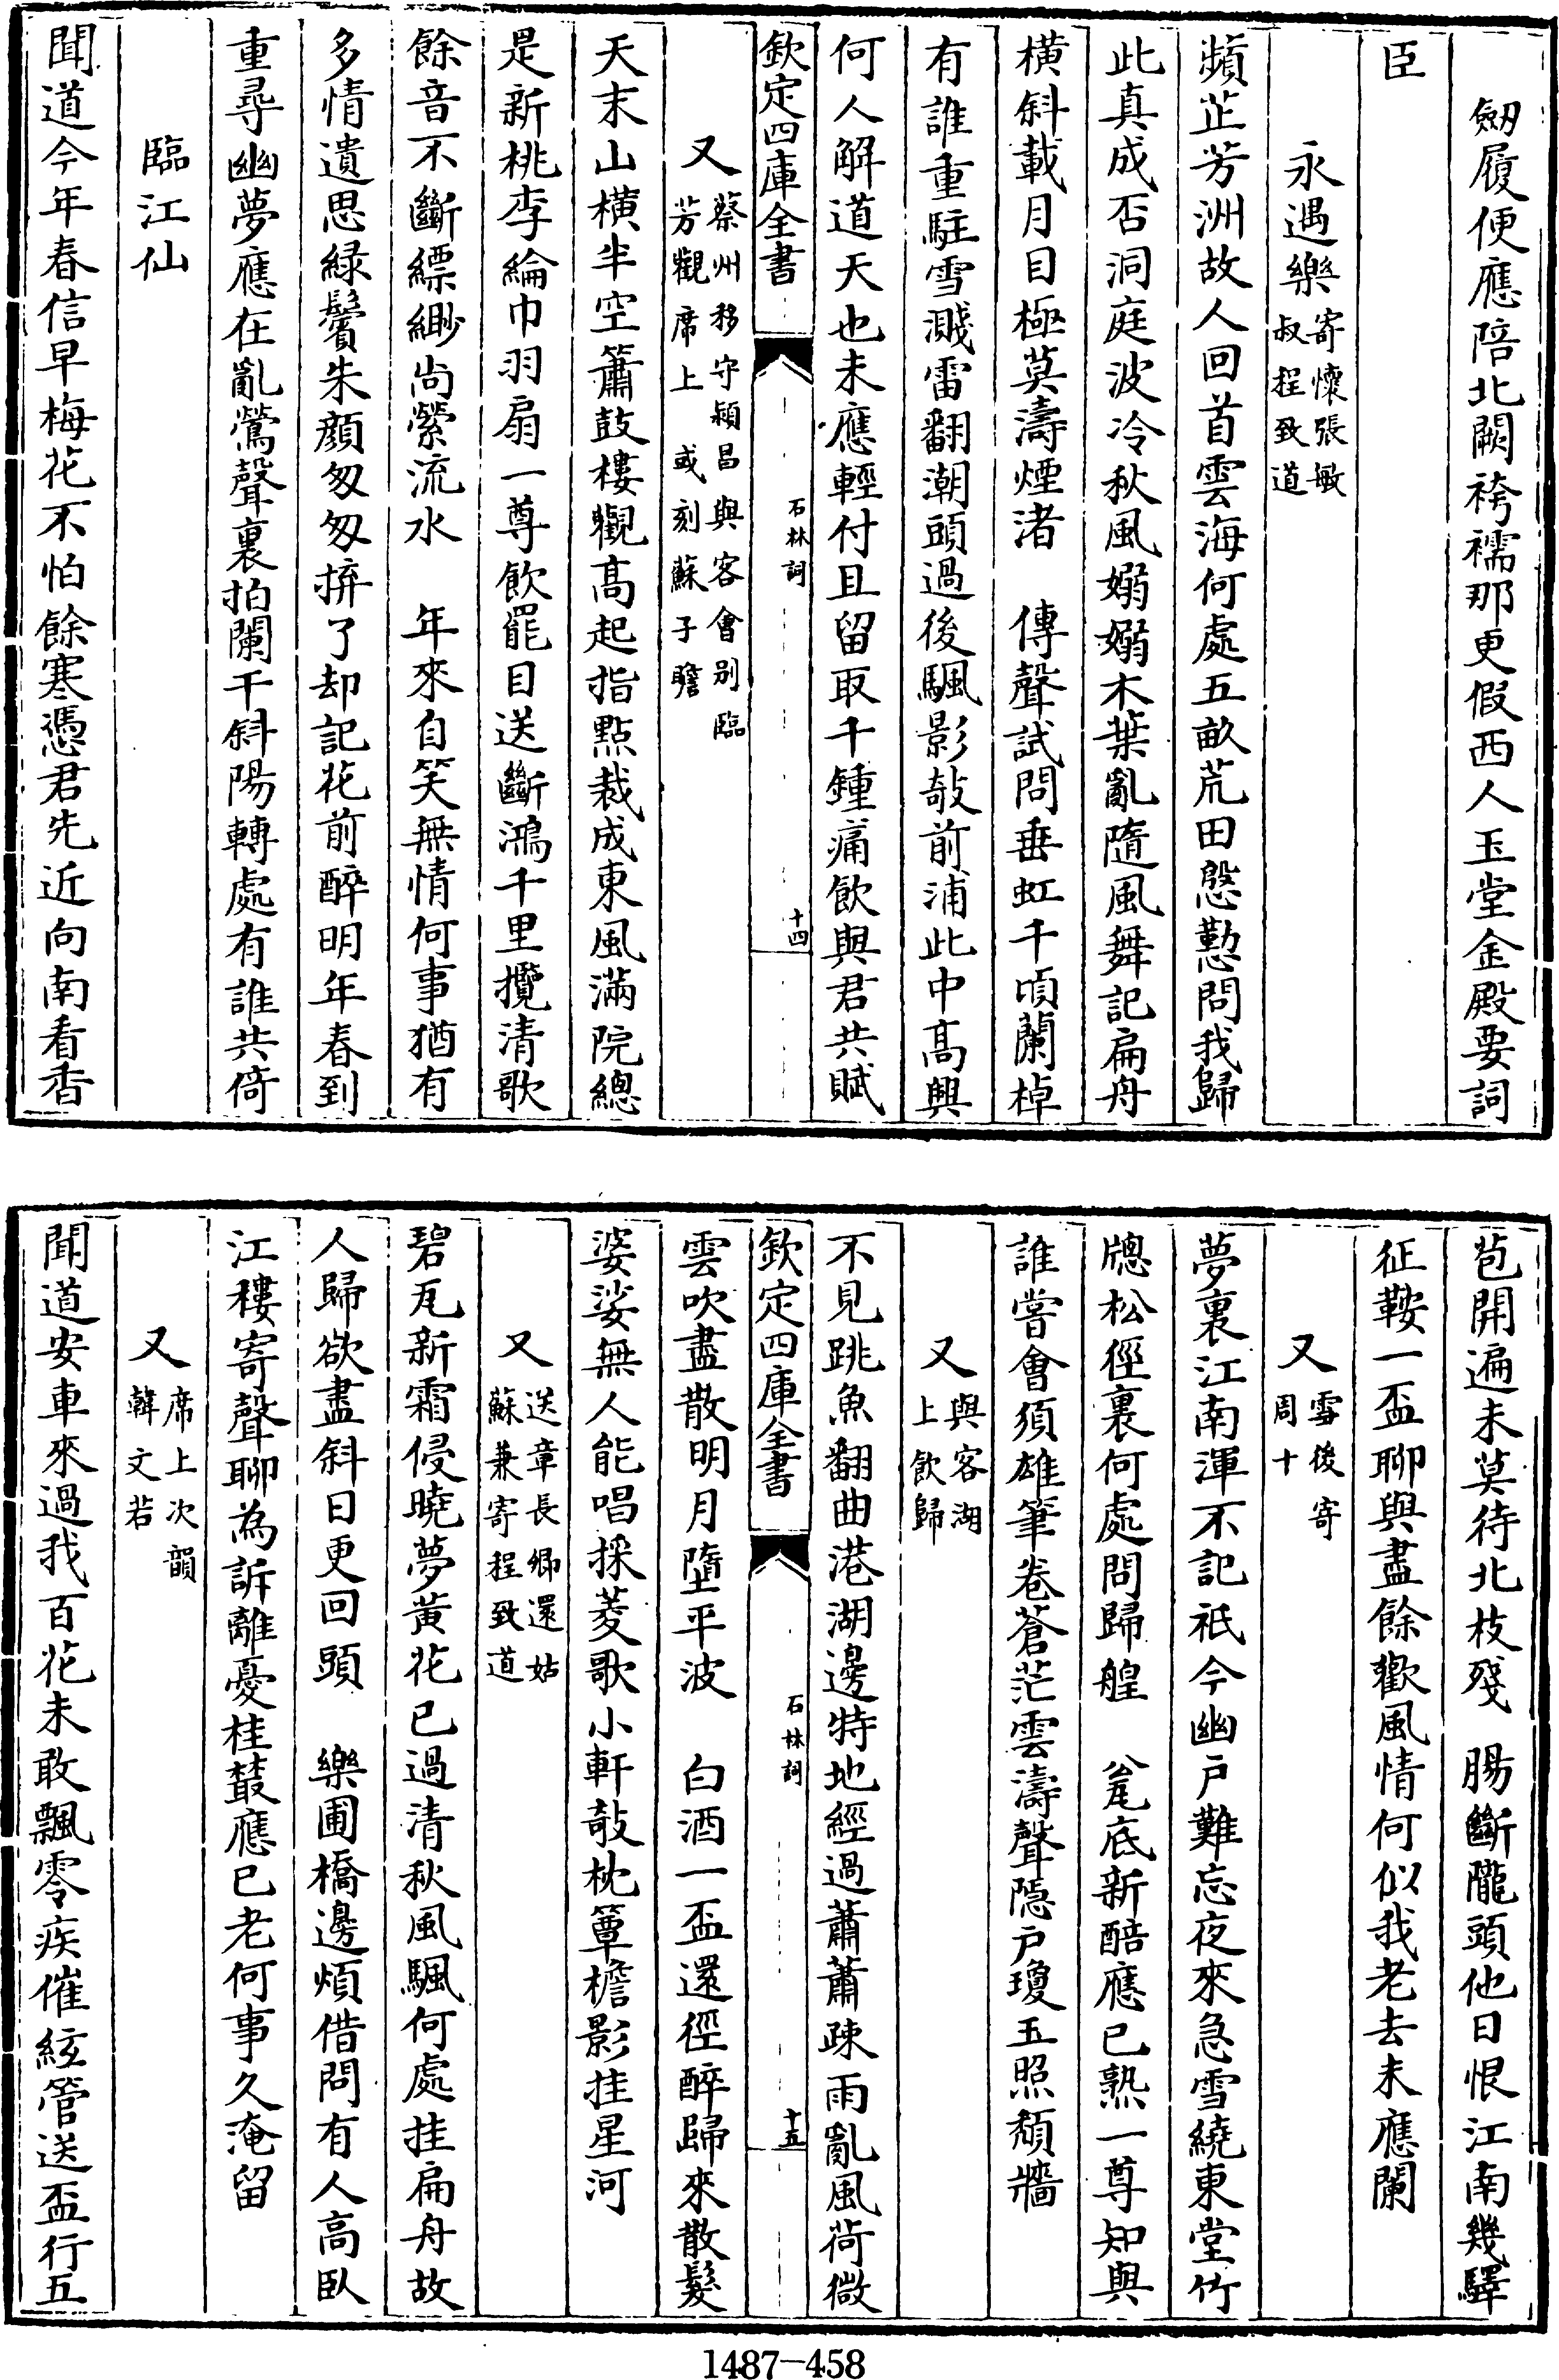 劒履便應陪北闕袴襦那更假西人玉堂金殿要詞
臣
永遇樂寄懷張敏
叔程致道
蘋芷芳洲故人回首雲海何處五畝荒田慇懃問我歸
此真成否洞庭波冷秋風嫋嫋木葉亂隨風舞記扁舟
橫斜載月目極莫濤煙渚　傳聲試問垂虹千頃蘭棹
有誰重駐雪濺雷翻潮頭過後颿影敧前浦此中髙興
何人解道天也未應輕付且留取千鍾痛飲與君共賦
欽定四庫全書
石林詞
十四
又蔡州移守潁昌與客會别臨
芳觀席上　或刻蘇子瞻
天末山橫半空簫鼓樓觀髙起指點裁成東風滿院總
是新桃李綸巾羽扇一尊飲罷目送斷鴻千里攬清歌
餘音不斷縹緲尚縈流水　年來自笑無情何事猶有
多情遺思緑鬢朱顔匆匆拚了却記花前醉明年春到
重尋幽夢應在亂鶯聲裏拍闌干斜陽轉處有誰共倚
臨江仙
聞道今年春信早梅花不怕餘寒憑君先近向南看香
苞開遍未莫待北枝殘　腸斷隴頭他日恨江南幾驛
征鞍一盃聊與盡餘歡風情何似我老去未應闌
又雪後寄
周十
夢裏江南渾不記祇今幽戸難忘夜來急雪繞東堂竹
牕松徑裏何處問歸艎　瓮底新醅應已熟一尊知與
誰嘗會須雄筆卷蒼茫雲濤聲隠戸瓊玉照頽牆
又與客湖
上飲歸
不見跳魚翻曲港湖邊特地經過蕭蕭疎雨亂風荷微
欽定四庫全書
石林詞
十五
雲吹盡散明月墮平波　白酒一盃還徑醉歸來散髮
婆娑無人能唱採菱歌小軒敧枕簟檐影挂星河
又送章長卿還姑
蘇兼寄程致道
碧瓦新霜侵曉夢黄花已過清秋風颿何處挂扁舟故
人歸欲盡斜日更回頭　樂圃橋邊煩借問有人髙臥
江樓寄聲聊為訴離憂桂叢應已老何事久淹留
又席上次韻
韓文若
聞道安車來過我百花未敢飄零疾催絃管送盃行五
1487—458